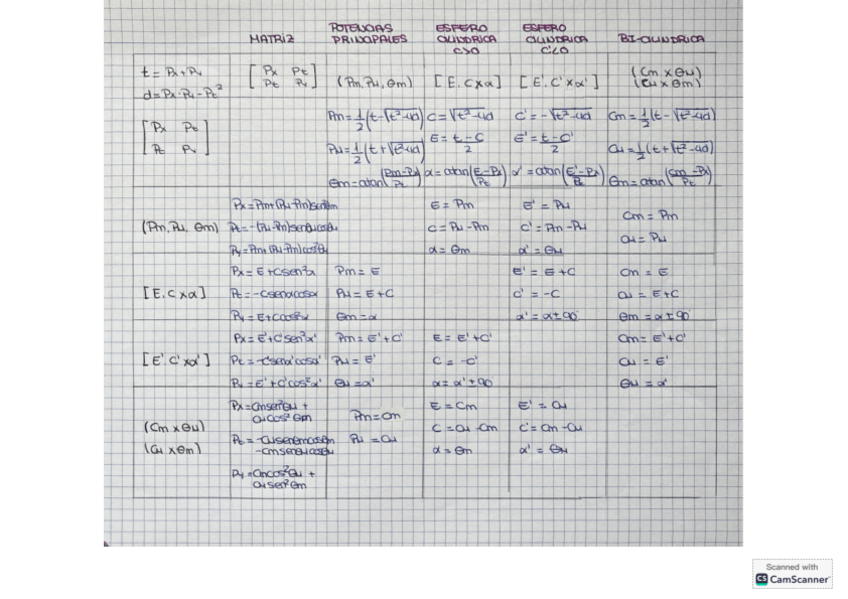 MATRIZ
POTENCIAS PRINCIPALES
ESFERO CILINDRICA C>0
ESFERO CILINDRICA C'<0
BI-CILINDRICA
t = Px+Py
d=Px·Py-Pt²
[Px Pt
Pt Py]
(Pm, Pu, θm)
[E, C×α]
[E', C'×α']
(Cm × θu)
(Cu × θm)
[Px Pt
Pt Py]
Pm=1/2(t-√t²-4d)
Pu=1/2(t+√t²-4d)
θm=atan(Pm-Px/Pt)
C=√t²-4d
E=t-C/2
α=atan(E-Px/Pt)
C'=-√t²-4d
E'=t-C'/2
α'=atan(E'-Px/Pt)
Cm=1/2(t-√t²-4d)
Cu=1/2(t+√t²-4d)
θm=atan(Cm-Px/Pt)
(Pm, Pu, θm)
Px=Pm+(Pu-Pm)sen²θm
Pt=-(Pu-Pm)senθmcosθm
Py=Pm+(Pu-Pm)cos²θm
E = Pm
C = Pu-Pm
α = θm
E' = Pu
C' = Pm-Pu
α' = θu
Cm = Pm
Cu = Pu
[E, C×α]
Px=E+Csen²α
Pt=-Csenαcosα
Py=E+Ccos²α
Pm=E
Pu=E+C
θm=α
E' = E+C
C' = -C
α'=α±90
Cm = E
Cu = E+C
θm = α±90
[E', C'×α']
Px=E'+C'sen²α'
Pt=-C'senα'cosα'
Py=E'+C'cos²α'
Pm=E'+C'
Pu=E'
θu=α'
E=E'+C'
C=-C'
α=α'±90
Cm=E'+C'
Cu=E'
θu=α'
(Cm × θu)
(Cu × θm)
Px=Cmsen²θu +
Cucos²θm
Pt=-Cusenθmcosθm
-Cmsenθucosθu
Py=Cmcos²θu +
Cusen²θm
Pm=Cm
Pu=Cu
E=Cm
C=Cu-Cm
α=θm
E'=Cu
C'=Cm-Cu
α'=θu
Scanned with
CS CamScanner